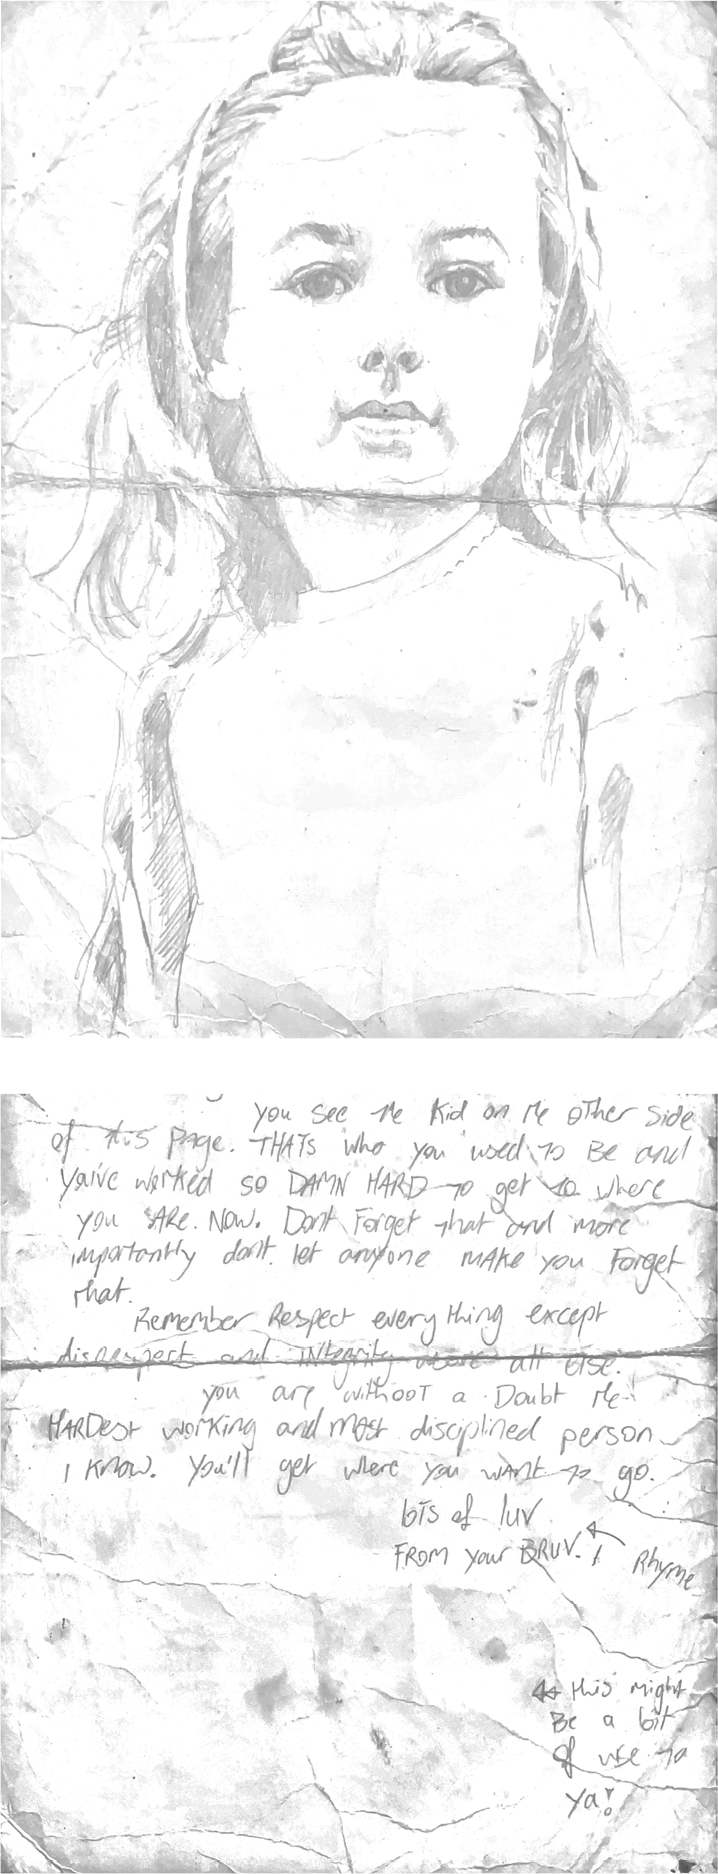 you see the kid on the other side
of this page. THATs who you used to BE and
you've worked so DAMN HARD to get to where
you ARE NOW. Dont Forget that and more
importantly dont let anyone mAKe you Forget
that.
Remember Respect everything except
disrespect and INtegrity above all else.
you are without a Doubt the
HARDest working and most disciplined person
I KNow. You'll get where you wANt to go.
bits of luv
FROM your BRUV. !
Rhyme
this might
Be a bit
of use to
ya!